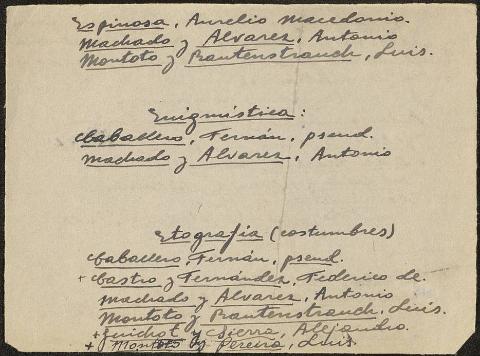 Espinosa, Aurelio Macedonio.
Machado y Alvarez, Antonio
Montoto y Rautenstrauch, Luis.
Enigmística:
Caballero, Fernán, pseud.
Machado y Alvarez, Antonio
Etografía (costumbres)
Caballero, Fernán, pseud.
+ Castro y Fernández, Federico de.
Machado y Alvarez, Antonio
Montoto y Rautenstrauch, Luis.
+ Guichot y Sierra, Alejandro.
+ Montoto y Pereira, Luis.